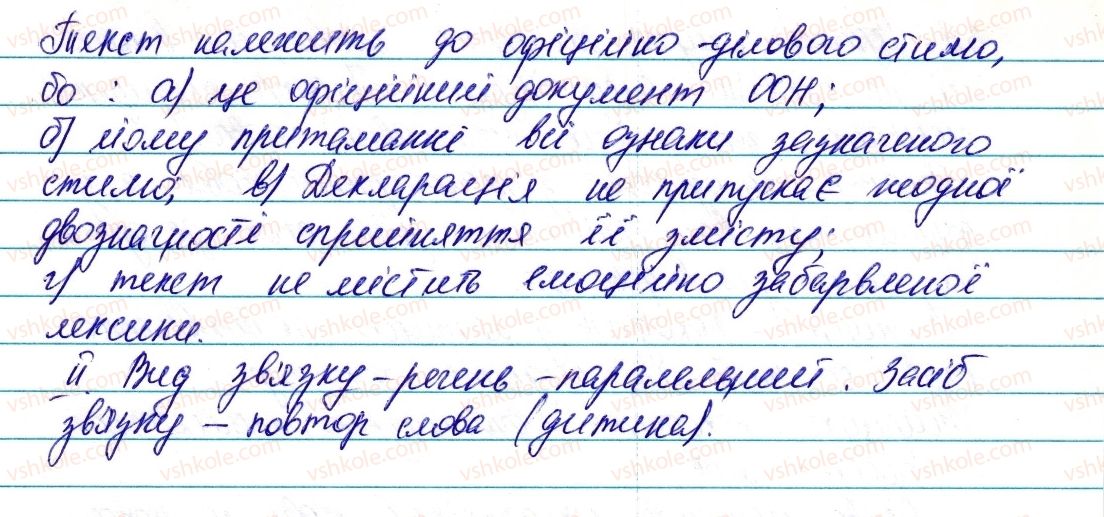 Текст належить до офіційно-ділового стилю,
бо: а) це офіційний документ ООН;
б) йому притаманні всі ознаки зазначеного
стилю; в) Декларація не припускає жодної
двозначності сприйняття її змісту;
г) текст не містить емоційно забарвленої
лексики.
ІІ. Вид зв'язку - речень - паралельний. Засіб
зв'язку – повтор слова (дитина).
vshkole.com